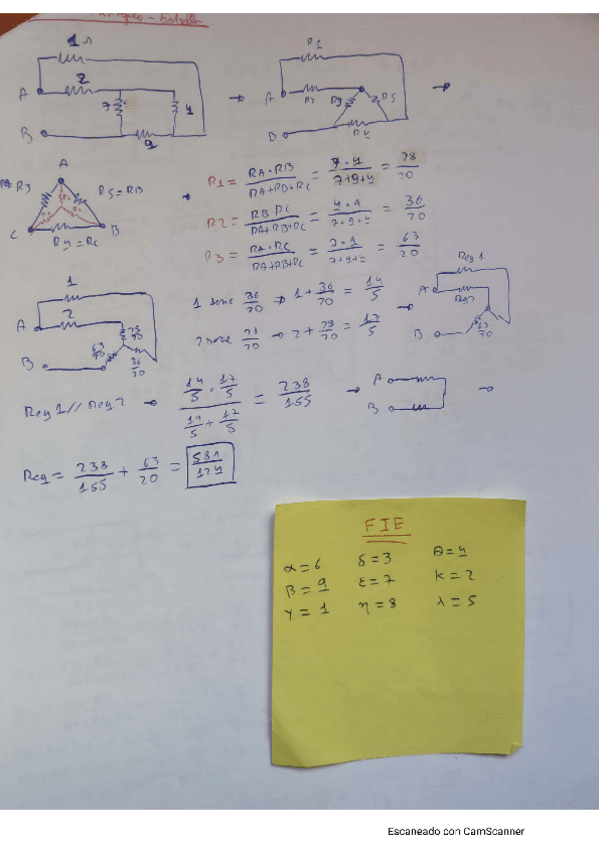 1 Ω
2
A
7
4
B
9
R1
A
R3
R5
B
R4
A
R5 = RB
C
B
R4 = RC
R1 = RA · RB / RA+RB+RC = 7·4 / 7+9+4 = 28 / 20
R2 = RB RC / RA+RB+RC = 4·9 / 7+9+4 = 36 / 20
R3 = RA·RC / RA+RB+RC = 7·9 / 7+9+4 = 63 / 20
1
A
2
B
63/20
36/20
1 serie 36/20 → 1 + 36/20 = 14/5
2 serie 28/20 → 2 + 28/20 = 17/5
Req 1
A
Req2
B
63/20
Req 1 // Req 2 → 14/5 · 17/5 / 14/5 + 17/5 = 238/155
A
B
Req = 238/155 + 63/20 = 581/124
FIE
α = 6 δ = 3 θ = 4
β = 9 ε = 7 K = 2
γ = 1 η = 8 λ = 5
Escaneado con CamScanner